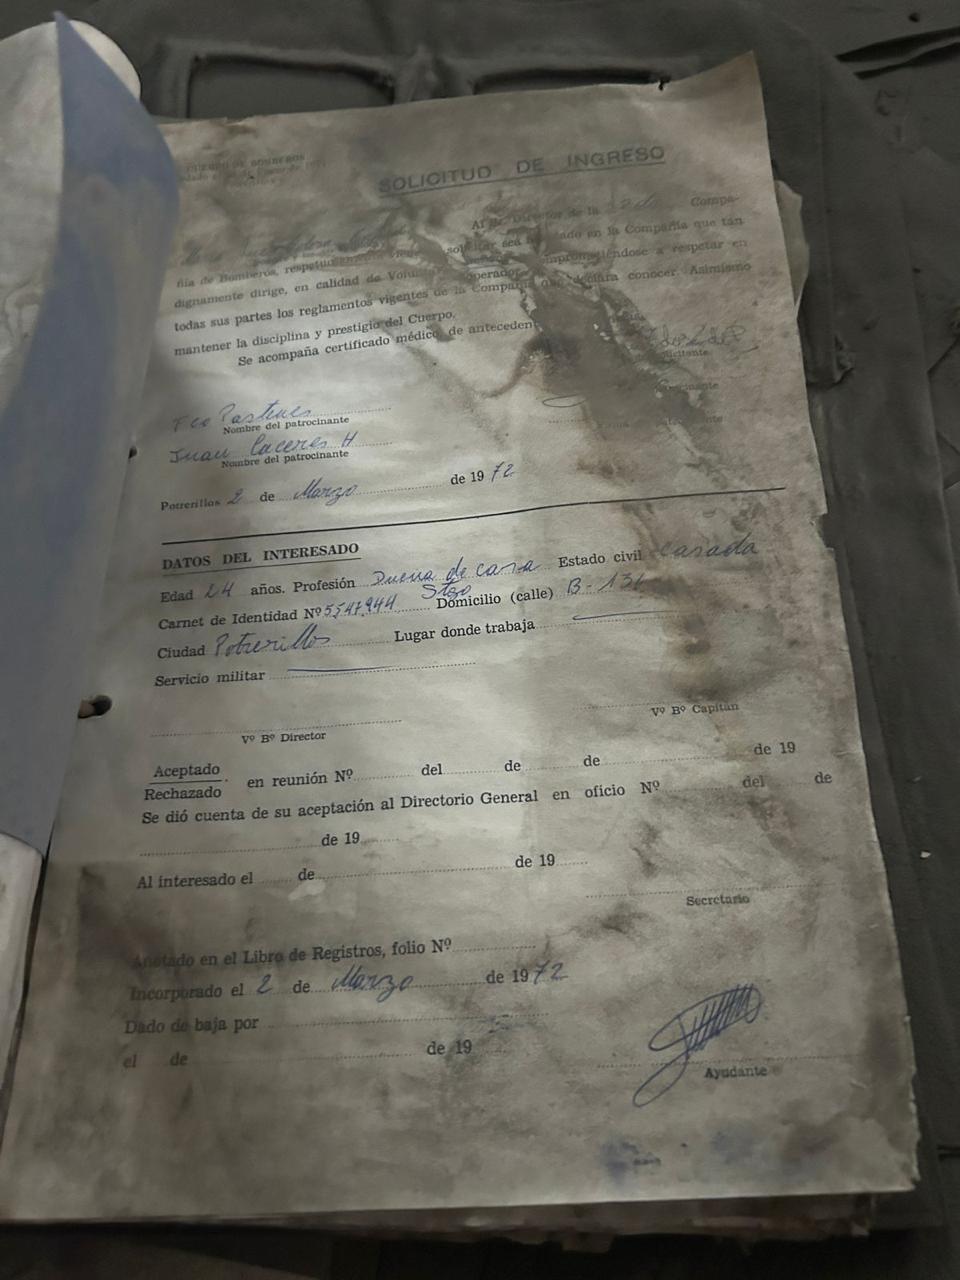 CUERPO DE BOMBEROS
SOLICITUD DE INGRESO
Al Sr. Director de la 2da Compa-
ñía de Bomberos, respetuosamente solicitar sea en la Compañía que tan
dignamente dirige, en calidad de comprometiéndose a respetar en
todas sus partes los reglamentos vigentes de la Compañía que declara conocer. Asimismo
mantener la disciplina y prestigio del Cuerpo.
Se acompaña certificado médico de
Solicitante
Fco Pastenes
Nombre del patrocinante
Juan Caceres H
Nombre del patrocinante
Potrerillos 2 de Marzo de 1972
DATOS DEL INTERESADO
Edad 24 años. Profesión Dueña de casa Estado civil casada
Carnet de Identidad Nº 5547944 Stgo Domicilio (calle) B-
Ciudad Potrerillos Lugar donde trabaja
Servicio militar
Vº Bº Director Vº Bº Capitán
Aceptado
Rechazado en reunión Nº del de de de 19
Se dió cuenta de su aceptación al Directorio General en oficio Nº del de
de 19
Al interesado el de de 19
Secretario
Anotado en el Libro de Registros, folio Nº
Incorporado el 2 de Marzo de 1972
Dado de baja por
el de de 19
Ayudante